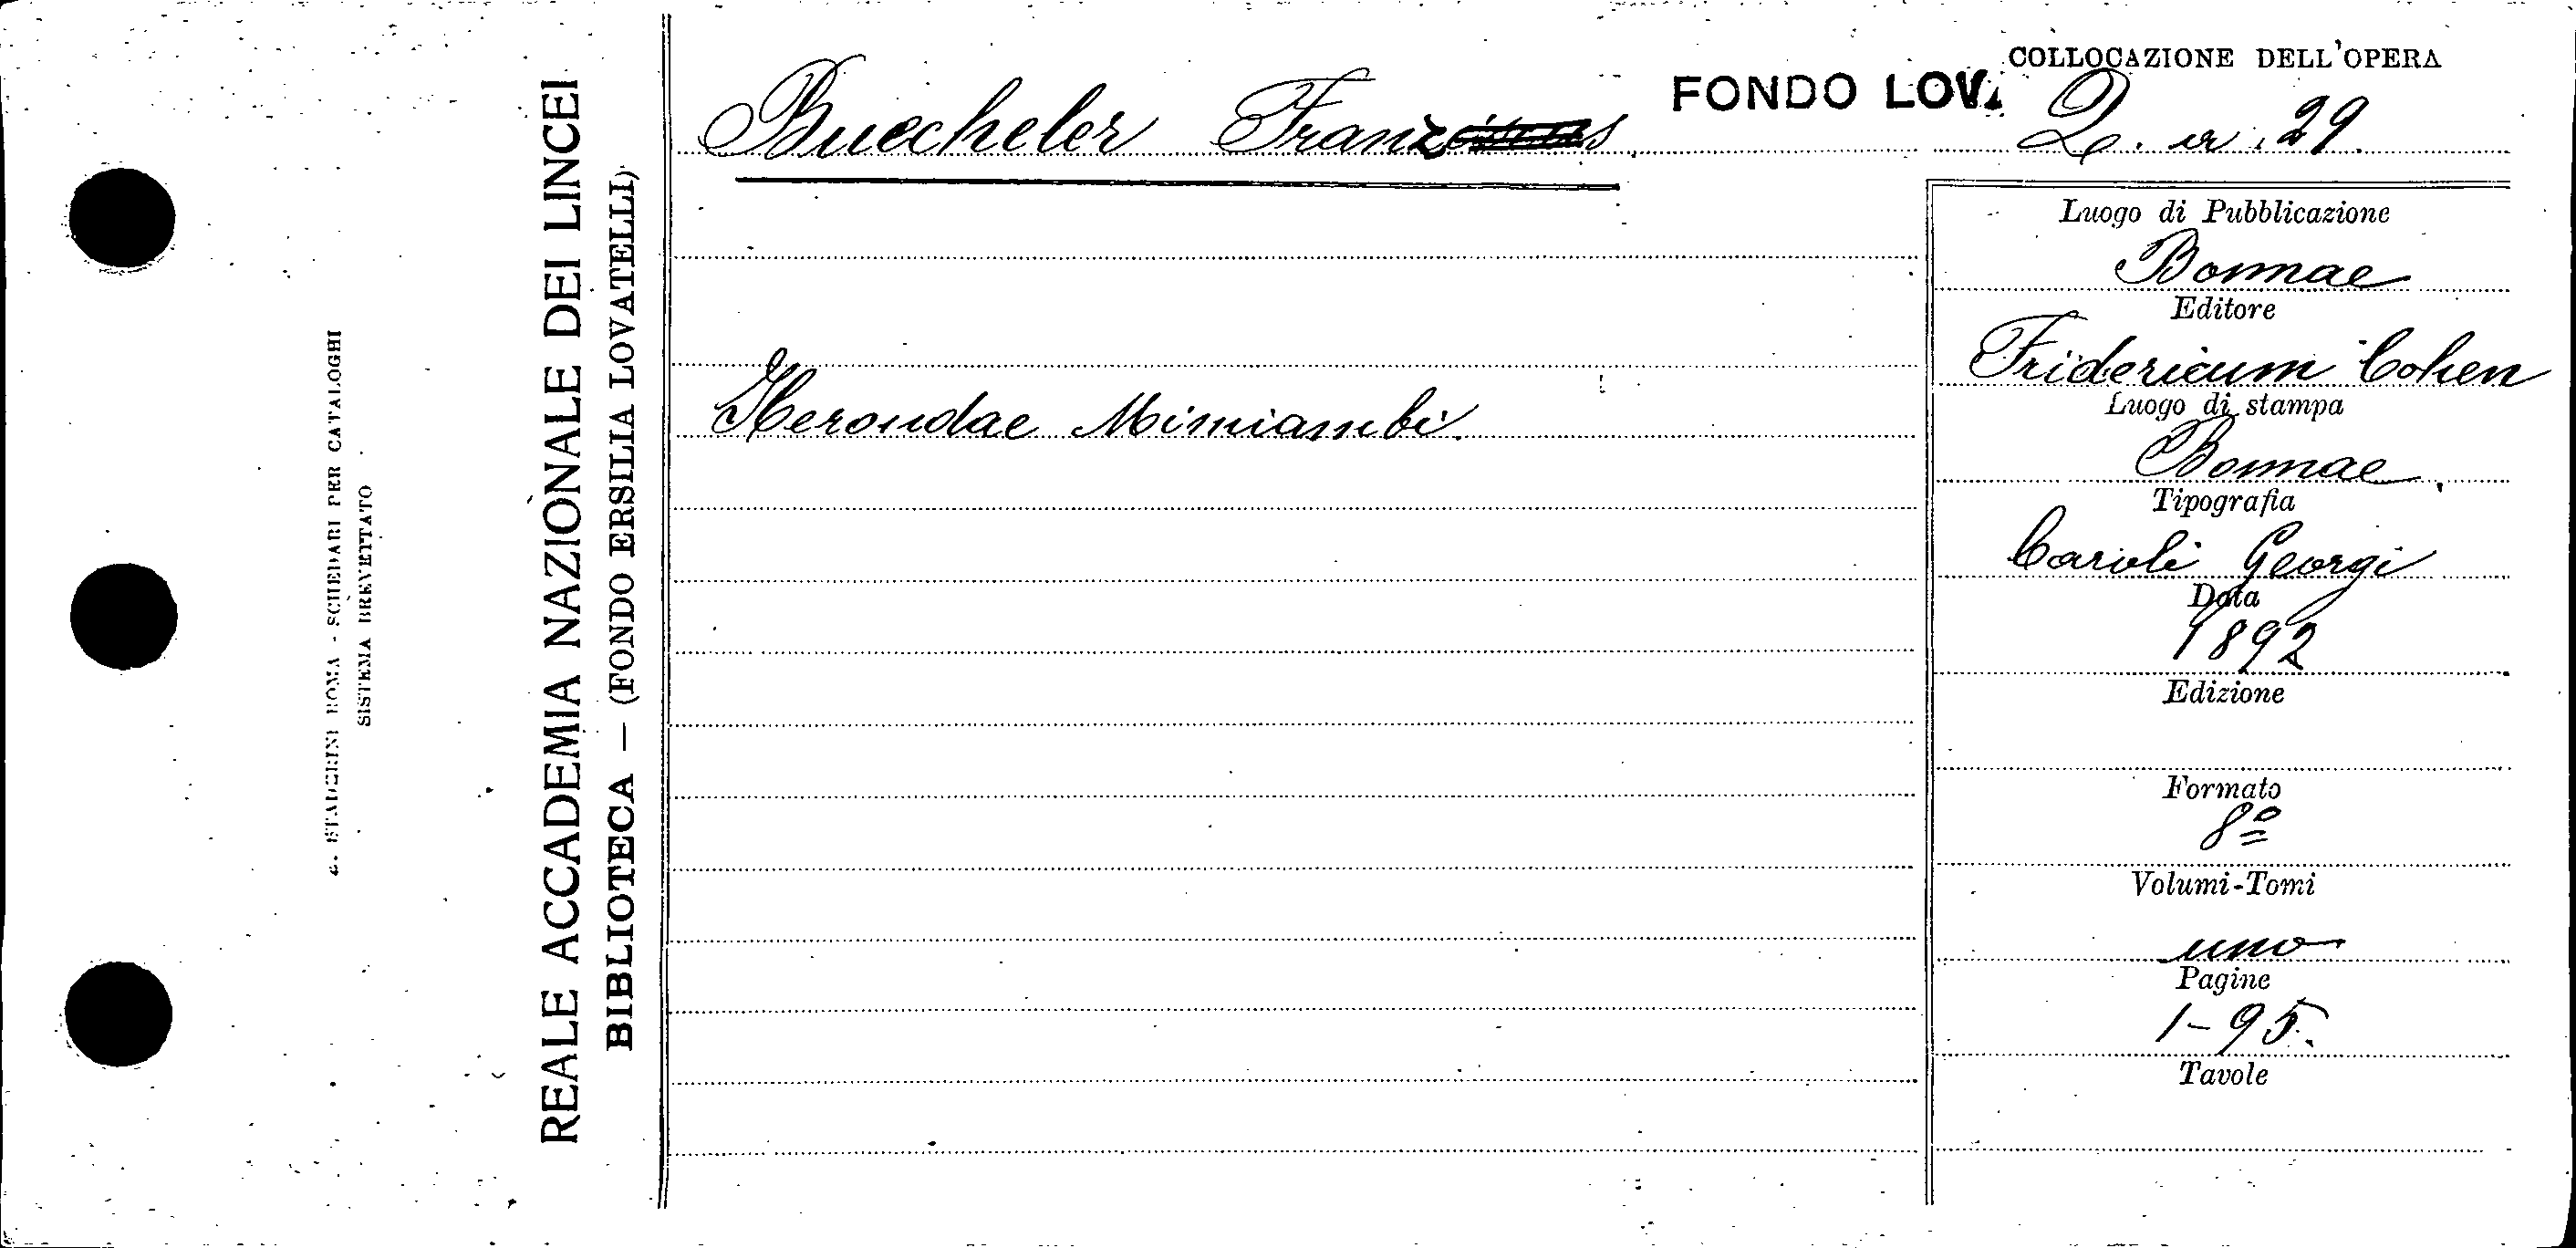 REALE ACCADEMIA NAZIONALE DEI LINCEI
BIBLIOTECA — (FONDO ERSILIA LOVATELLI)
STADERINI ROMA - SCHEDARI PER CATALOGHI
SISTEMA BREVETTATO
Buecheler Franz
FONDO LOV.
COLLOCAZIONE DELL'OPERA
29.
Herondae Mimiambi.
Luogo di Pubblicazione
Bonnae
Editore
Fridericum Cohen
Luogo di stampa
Bonnae
Tipografia
Caroli Georgi
Data
1892
Edizione
Formato
8º
Volumi-Tomi
uno
Pagine
1-95.
Tavole